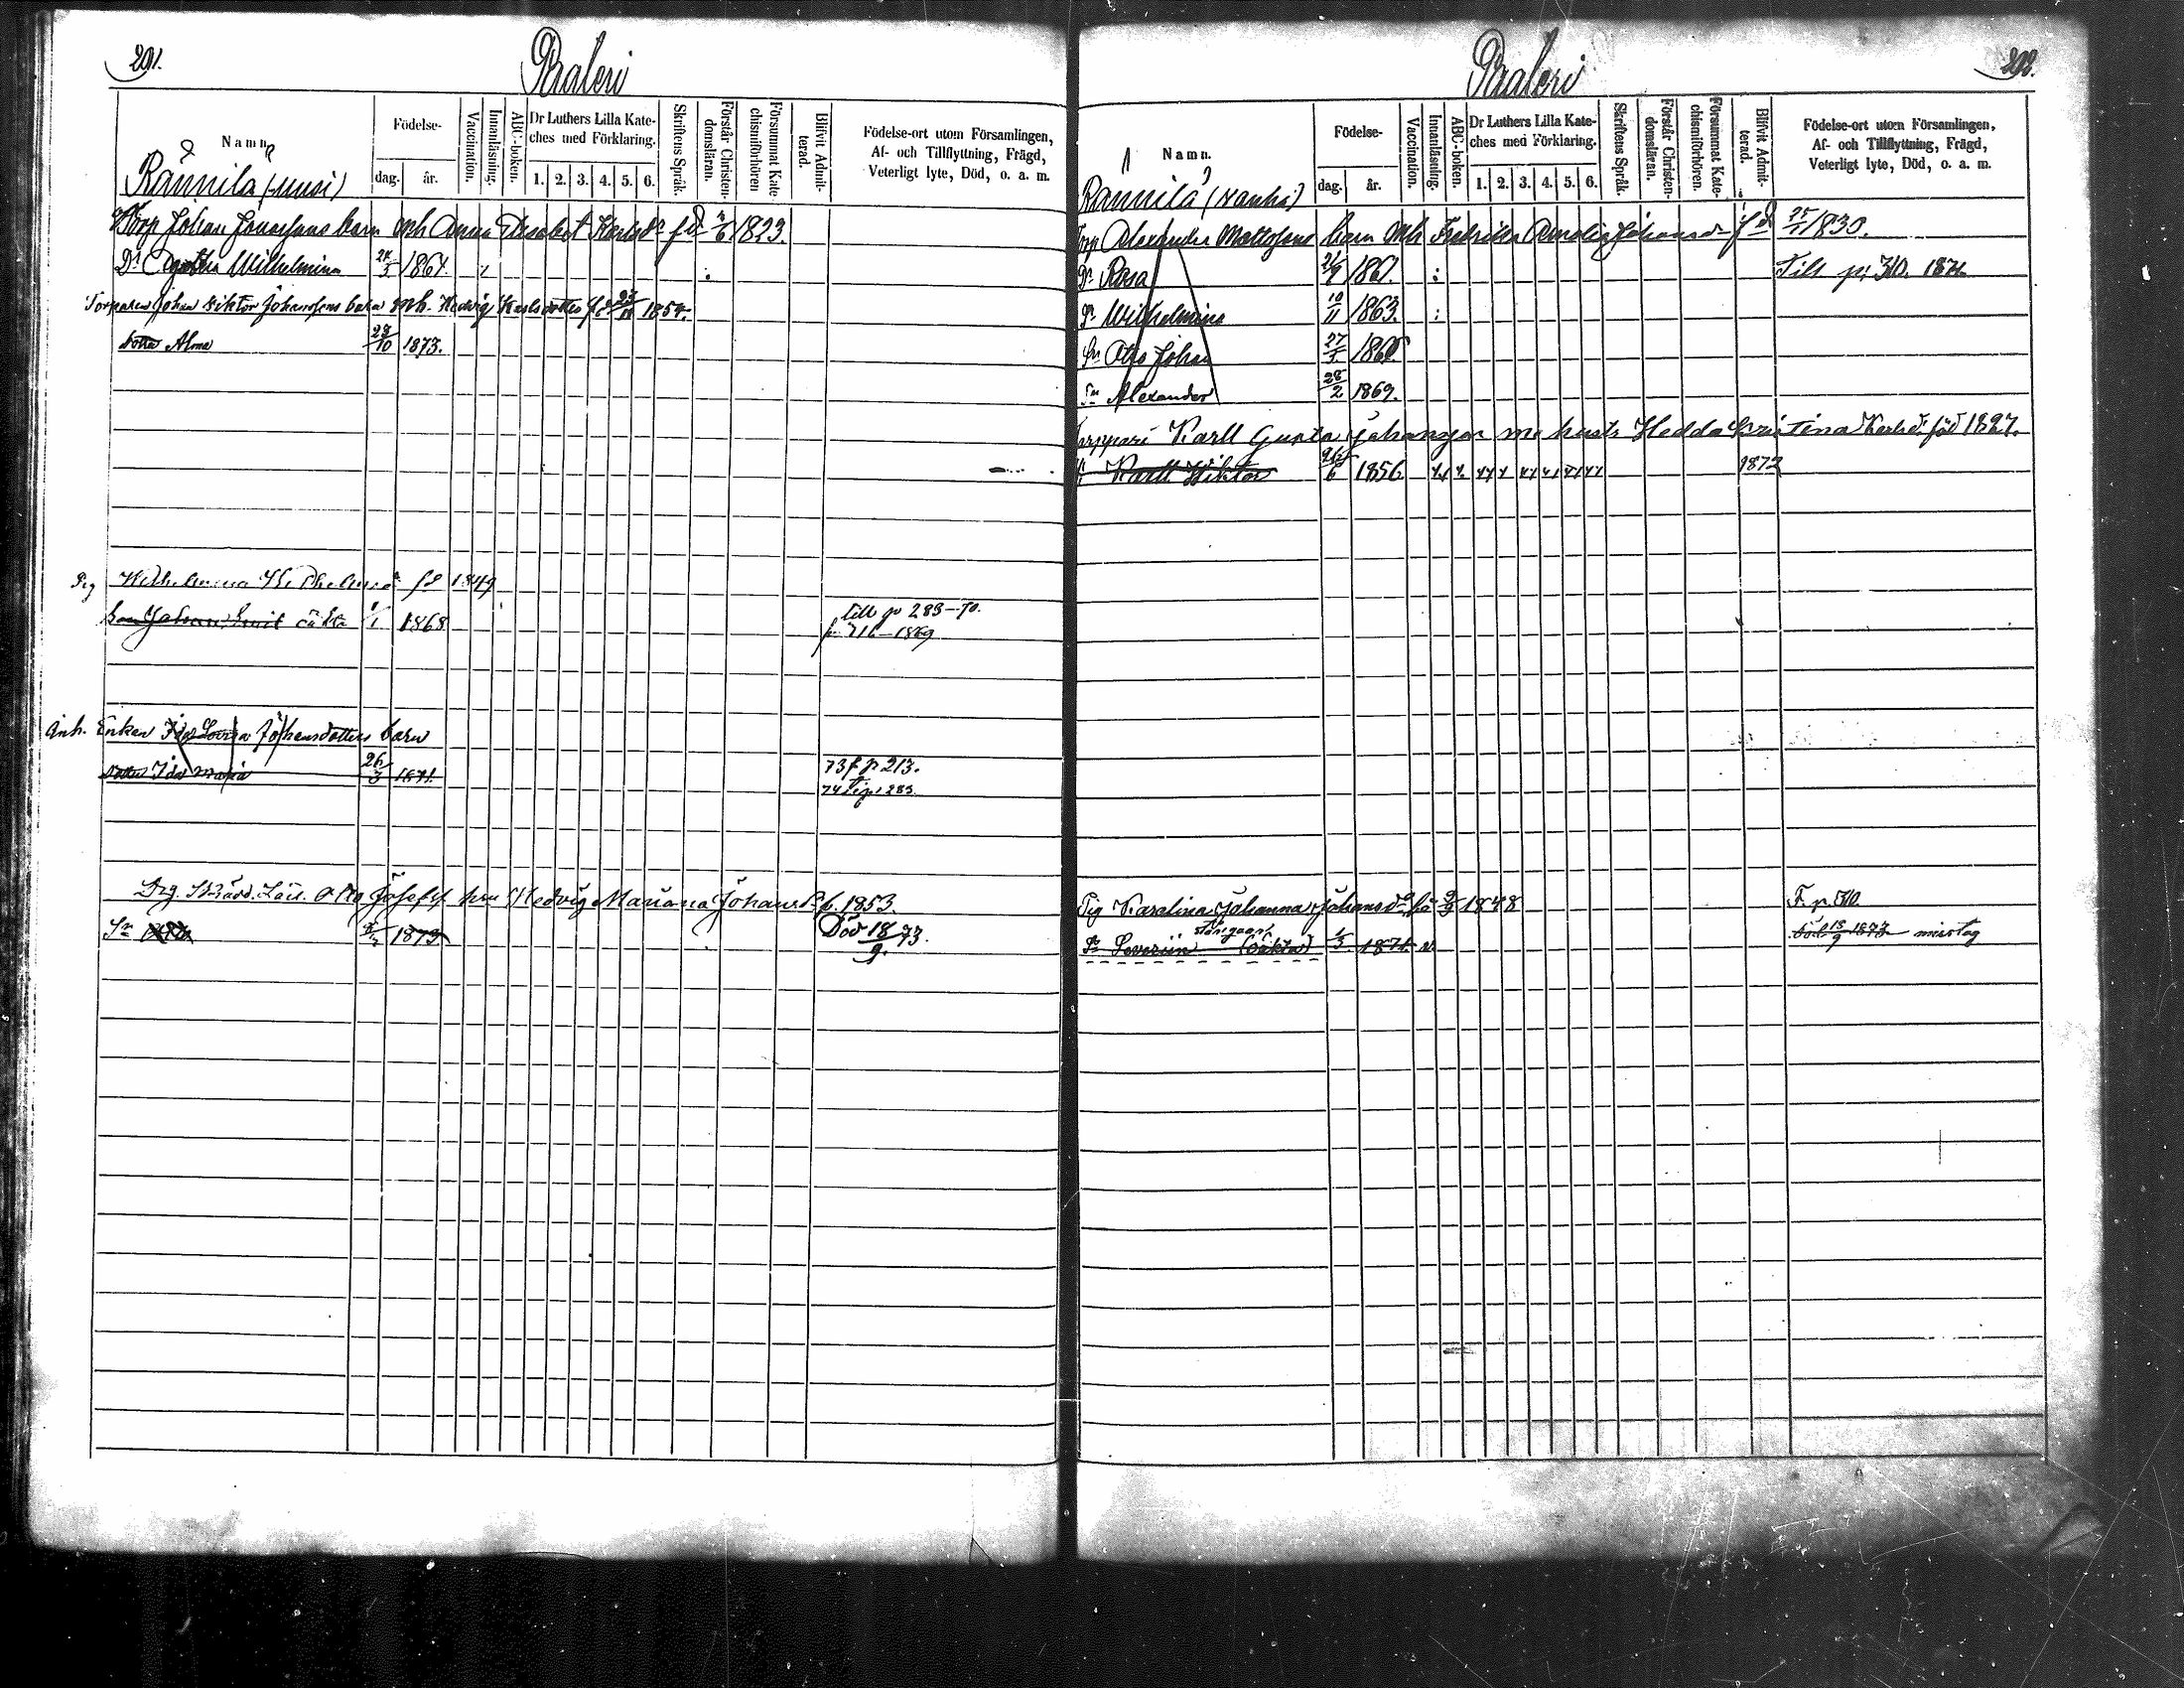 291.
Paaleri
Namn.
Födelse-
dag.
år.
Vaccination.
Innanläsning.
ABC-boken.
Dr Luthers Lilla Kate-
ches med Förklaring.
1. 2. 3. 4. 5. 6.
Skriftens Språk.
Förstår Christen-
domsläran.
Försummat Kate-
chismiförhören
Blifvit Admit-
terad.
Födelse-ort utom Församlingen,
Af- och Tillflyttning, Frägd,
Veterligt lyte, Död, o. a. m.
Rännilä (Uusi)
Torp Johan barn mh Anna Karlsdr fd 6 1823.
Dr Agatha Wilhelmina 24/3 1861
Torparen Johan Viktor Johanssons barn mh. Hedvig Karlsdotter 1854.
dotter Alma 28/10 1873.
Pig Wilhelmina fd 1849
Son Johan Emil oäkta 1/1 1868 till p 283-70.
1869
Inh. Enkan Ida Lovisa Johansdotters barn
dotter Ida Maria 26/3 1871. 73 f p 213.
74 t. p. 283
Drg. Otto Josefss. hu Hedvig Mariana Johansd f. 1853.
Sn Otto 1873 Död 18/9 73.
292.
Paaleri
Namn.
Födelse-
dag.
år.
Vaccination.
Innanläsning.
ABC-boken.
Dr Luthers Lilla Kate-
ches med Förklaring.
1. 2. 3. 4. 5. 6.
Skriftens Språk.
Förstår Christen-
domsläran.
Försummat Kate-
chismiförhören.
Blifvit Admit-
terad.
Födelse-ort utom Församlingen,
Af- och Tillflyttning, Frägd,
Veterligt lyte, Död, o. a. m.
Rännilä (Vanha)
Torp Alexander Mattssons barn mh Fredrika Amalia Johansdr fd 25/1 1830.
Dr Rosa 21/9 1861. Till p. 310. 1871.
Dr Wilhelmina 10/11 1863.
Sn Otto Johan 27/5
Sn Alexander 28/2 1869.
Torppari Karll Gusta Johansson m. hustr. Hedda Kristina Karlsd. föd 1827.
Karll Wiktor 26/6 1856. 1872
Pig Karolina Johanna Johansdr fd 1848 F. p. 310.
Sn Severiin (oäkta) 1871. död 18/9 1873 misstag